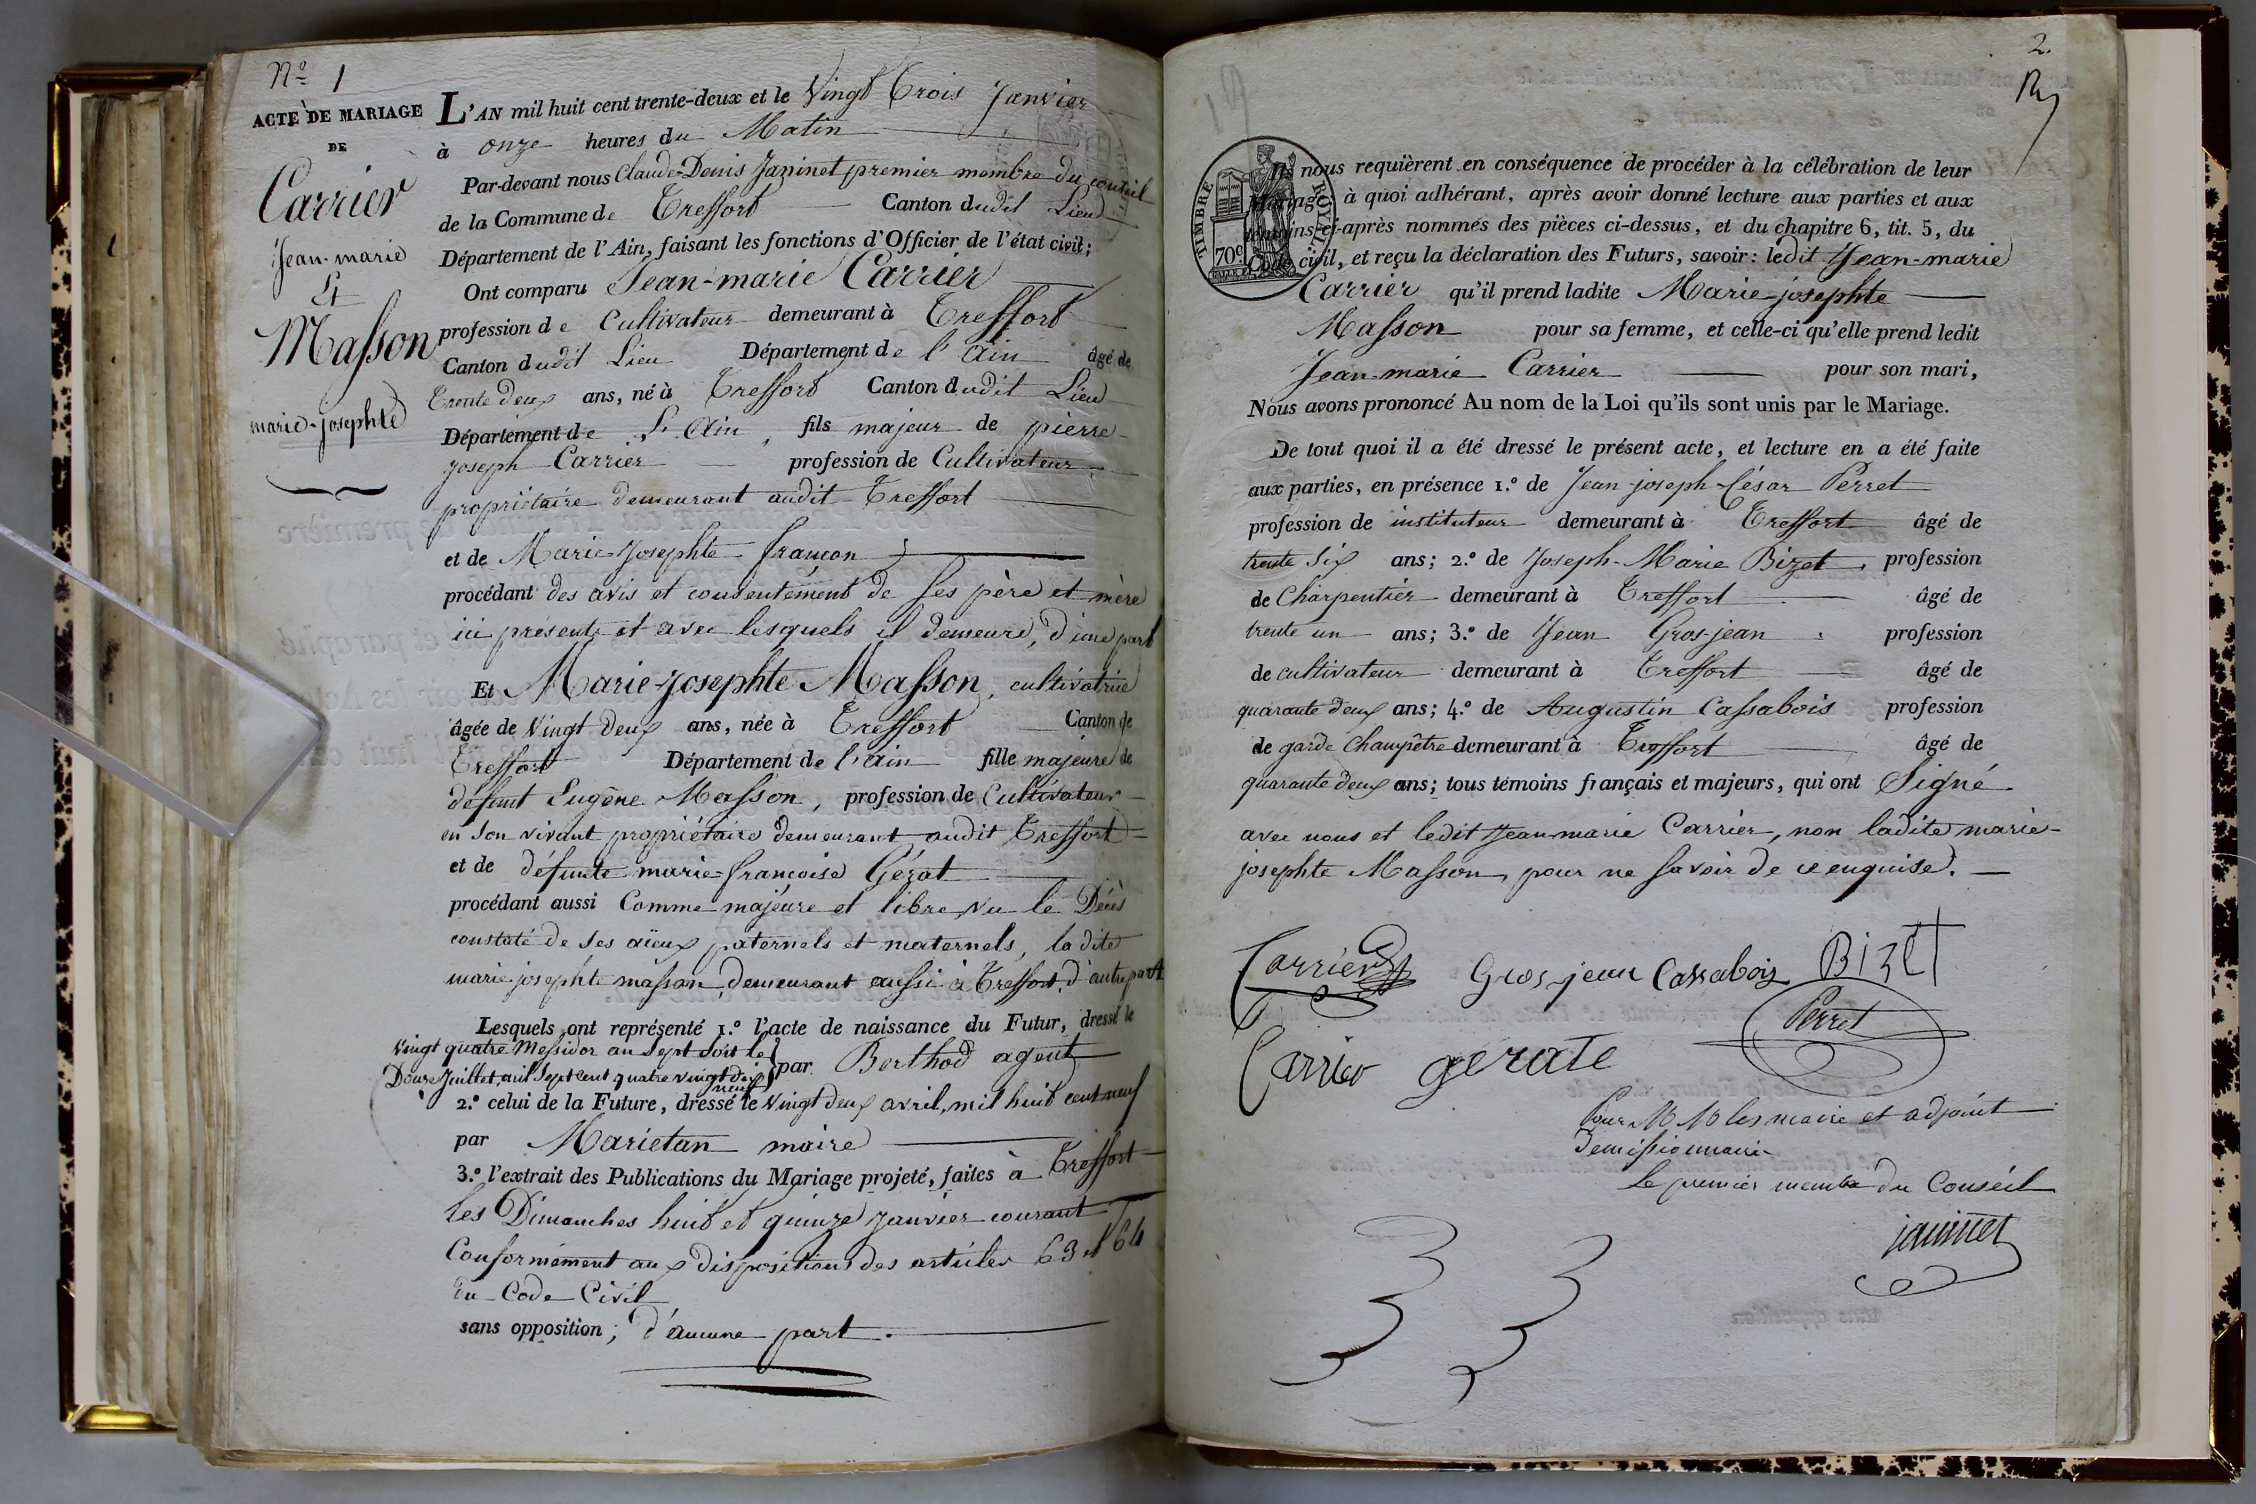 N.º 1
ACTE DE MARIAGE
DE
Carrier
Jean-marie
Et
Masson
marie-josephte
L'AN mil huit cent trente-deux et le Vingt Trois Janvier
à onze heures du Matin
Par-devant nous Claude-Denis Janinet premier membre du conseil
de la Commune de Treffort Canton dudit Lieu
Département de l'Ain, faisant les fonctions d'Officier de l'état civil;
Ont comparu Jean-marie Carrier
profession de Cultivateur demeurant à Treffort
Canton dudit Lieu Département de l'Ain âgé de
Trente deux ans, né à Treffort Canton dudit Lieu
Département de L'Ain, fils majeur de pierre
joseph Carrier profession de Cultivateur
propriétaire demeurant audit Treffort
et de Marie-Josephte françon;
procédant des avis et consentement de ses père et mère
ici présents et avec lesquels il demeure, d'une part
Et Marie-Josephte Masson, cultivatrice
âgée de Vingt deux ans, née à Treffort Canton de
Treffort Département de l'ain fille majeure de
défunt Eugène Masson, profession de Cultivateur
en son vivant propriétaire demeurant audit Treffort
et de défunte marie-françoise Gérat
procédant aussi Comme majeure et libre vu le Décès
constaté de ses aïeux paternels et maternels, la dite
marie josephte masson, demeurant aussi à Treffort, d'autre part
Lesquels ont représenté 1.º l'acte de naissance du Futur, dressé le
Vingt quatre Messidor an Sept soit le
Douze Juillet, mil Sept cent quatre vingt dix
neuf
par Berthod agent
2.º celui de la Future, dressé le Vingt deux avril, mil huit cent neuf
par Marietan maire
3.º l'extrait des Publications du Mariage projeté, faites à Treffort
les Dimanches huit et quinze janvier courant
Conformément aux dispositions des articles 63 et 64
du Code Civil
sans opposition; d'aucune part.
2.
TIMBRE ROYAL
70c
Ils nous requièrent en conséquence de procéder à la célébration de leur
Mariage, à quoi adhérant, après avoir donné lecture aux parties et aux
témoins ci-après nommés des pièces ci-dessus, et du chapitre 6, tit. 5, du
Code civil, et reçu la déclaration des Futurs, savoir: ledit Jean-marie
Carrier qu'il prend ladite Marie-josephte
Masson pour sa femme, et celle-ci qu'elle prend ledit
Jean-marie Carrier pour son mari,
Nous avons prononcé Au nom de la Loi qu'ils sont unis par le Mariage.
De tout quoi il a été dressé le présent acte, et lecture en a été faite
aux parties, en présence 1.º de Jean-joseph-César Perret
profession de instituteur demeurant à Treffort âgé de
trente Six ans; 2.º de Joseph-Marie Bizet, profession
de Charpentier demeurant à Treffort âgé de
trente un ans; 3.º de Jean Gros-jean profession
de cultivateur demeurant à Treffort âgé de
quarante deux ans; 4.º de Augustin Cassabois profession
de garde Champêtre demeurant à Treffort âgé de
quarante deux ans; tous témoins français et majeurs, qui ont Signé
avec nous et ledit Jean marie Carrier, non ladite marie-
josephte Masson, pour ne savoir de ce enquise.
Carrier Gros jean Cassabois Bizet
Perret
Carrier gerate
Pour M M les maire et adjoint
Demissionnaire
Le premier membre du Conseil
janinet